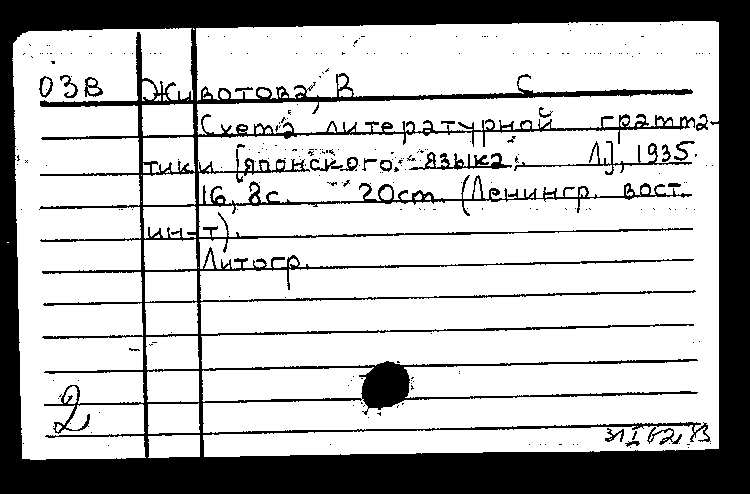 ОЗВ Животова, В С
Схема литературной грамма-
тики [японского языка. Л.], 1935.
16, 8с. 20ст. (Ленингр. вост.
ин-т).
Литогр.
2